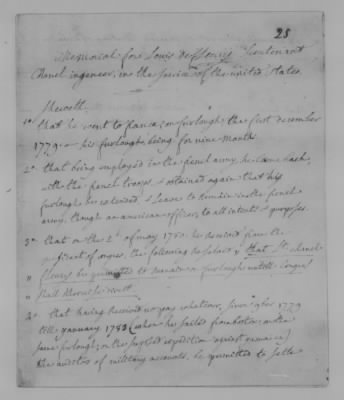 25
Memorial for Louis de fleury Lieutenant
Colonel ingeneer, in the service of the united states.
Sheweth
1° that he went to france, on furlough, the first december
1779 his furlough being for nine months.
2° that being employed in the french army, he came back
with the french troops & obtained again that his
furlough be extended & leave to remain in the french
army, though an american officer, to all intents & purposes
3° that on the of may 1781. he received from the
president of congress, the following resolution that Lt. colonel
" fleury be permitted to remain on furlough untill Congress
" shall
4° that having received no pay whatever, since 1779
till january 1783 (when he sailed from boston on the
same furlough, on the supposed expedition against jamaica)
the auditor of military accounts, be permitted to settle